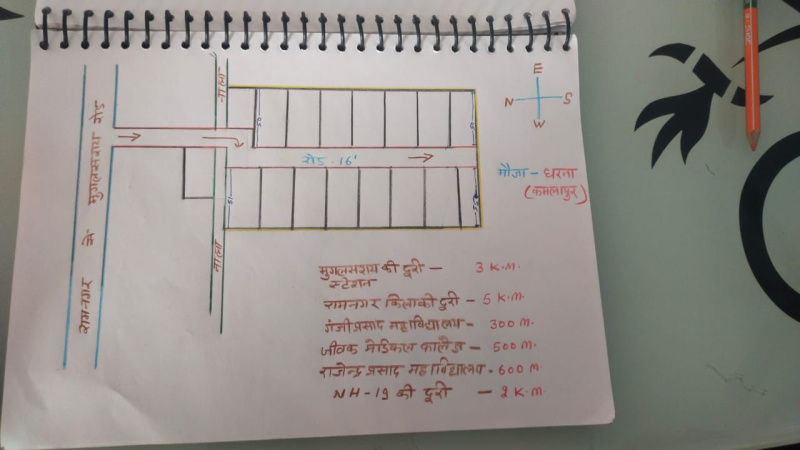 नाला
रामनगर से मुगलसराय रोड
रोड-16'
नाला
E
N S
W
मौजा - धरना
(कमलापुर)
मुगलसराय की दूरी - 3 K.M.
स्टेशन
रामनगर किला की दूरी - 5 K.M.
महाविद्यालय - 300 M.
जीवक मेडिकल कालेज - 500 M.
राजेन्द्र प्रसाद महाविद्यालय - 600 M.
NH-19 की दूरी - 2 K.M.